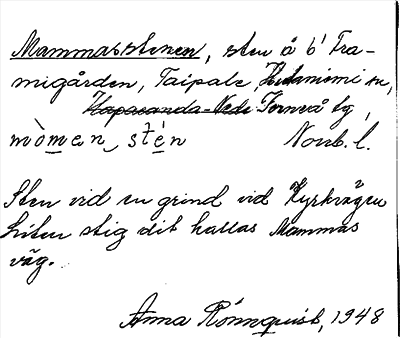 Mammasstenen, sten å b' Fra-
migården, Taipale, Hietaniemi sn,
Haparanda-Vedi Torneå tg,
mòmen stèn Norrb. l.
Sten vid en grind vid Kyrkvägen
Liten stig dit kallas Mammas
väg.
Anna Rönnquist, 1948